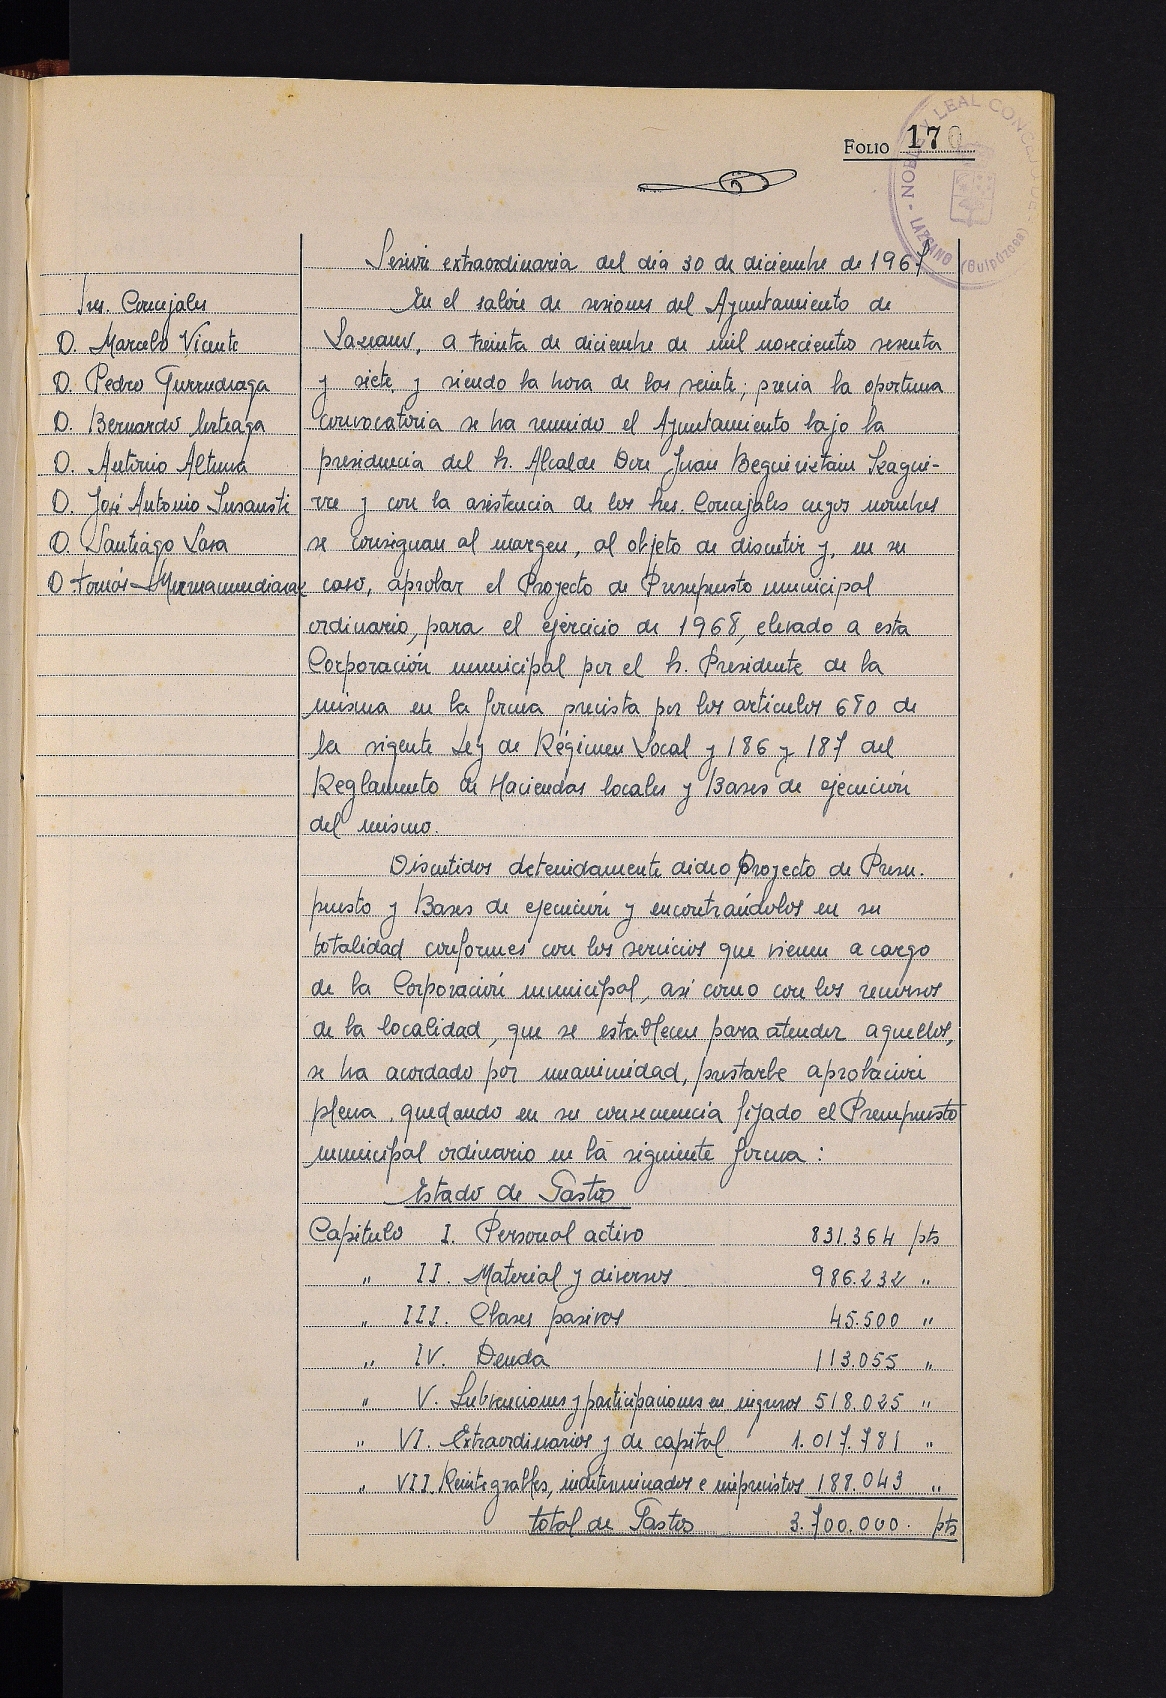 FOLIO 170
NOBLE Y LEAL CONCEJO DE LAZCANO (Guipúzcoa)
Sesión extraordinaria del dia 30 de diciembre de 1967
Sres. Concejales
D. Marcelo Vicente
D. Pedro Gurrudiaga
D. Bernardo Urteaga
D. Antonio Altuna
D. José Antonio Insausti
D. Santiago Lasa
D. Tomás
En el salón de sesiones del Ayuntamiento de
Lazcano, a treinta de diciembre de mil novecientos sesenta
y siete y siendo la hora de las veinte; previa la oportuna
convocatoria se ha reunido el Ayuntamiento bajo la
presidencia del Sr. Alcalde Don Juan Beguiristain Izagui-
rre y con la asistencia de los Sres. Concejales cuyos nombres
se consignan al margen, al objeto de discutir y, en su
caso, aprobar el Proyecto de Presupuesto municipal
ordinario, para el ejercicio de 1968, elevado a esta
Corporación municipal por el Sr. Presidente de la
misma en la forma prevista por los articulos 680 de
la vigente Ley de Régimen Local y 186 y 187 del
Reglamento de Haciendas locales y Bases de ejecución
del mismo.
Discutidos detenidamente dicho Proyecto de Presu-
puesto y Bases de ejecución y encontrándolos en su
totalidad conformes con los servicios que vienen a cargo
de la Corporación municipal, asi como con los recursos
de la localidad, que se establecen para atender aquellos,
se ha acordado por unanimidad, prestarle aprobación
plena, quedando en su consecuencia fijado el Presupuesto
municipal ordinario en la siguiente forma:
Estado de Gastos
Capitulo I. Personal activo 831.364 pts
" II. Material y diversos 986.232 "
" III. Clases pasivas 45.500 "
" IV. Deuda 113.055 "
" V. Subvenciones y participaciones en ingresos 518.025 "
" VI. Extraordinarios y de capital 1.017.781 "
" VII Reintegrables, indeterminados e imprevistos 188.043 "
total de Gastos 3.700.000. pts